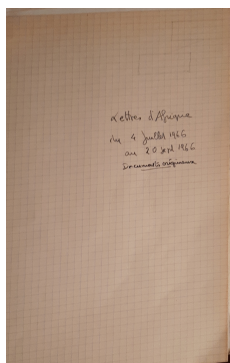 Lettres d'Afrique
du 4 Juillet 1966
au 20 Sept 1966
Documents originaux